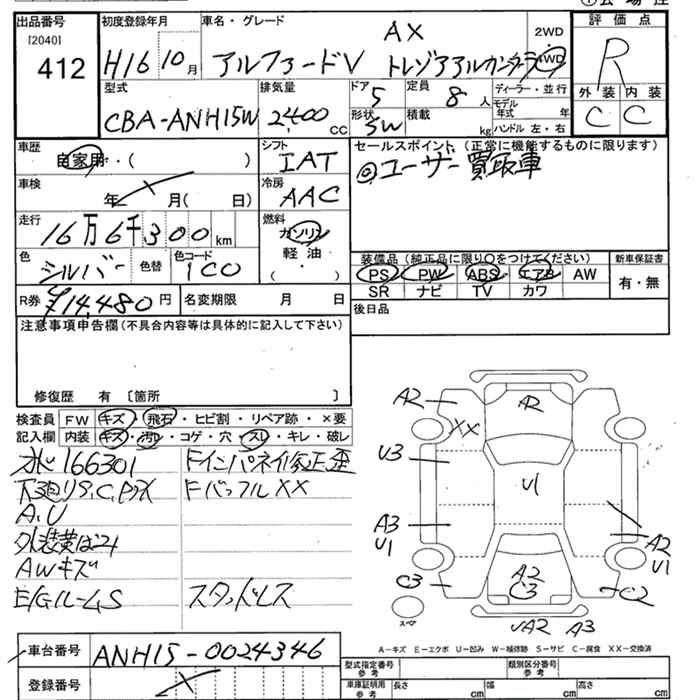 出品番号
[2040]
412
初度登録年月
H16 10月
車名・グレード
AX
アルファードV トレゾアアルカンターラ
2WD
4WD
評価点
R
外装 内装
C C
型式
CBA-ANH15W
排気量
2,400 cc
ドア 5
定員 8人
形状 SW
積載 kg
ディーラー・並行
モデル年式 年
ハンドル 左・右
車歴
自家用・( )
シフト
IAT
車検
年 月( 日)
冷房
AAC
走行
16万6千300km
燃料
ガソリン
軽油
( )
色
シルバー
色替
色コード
1C0
R券 ¥14,480円
名変期限 月 日
セールスポイント(正常に機能するものに限ります)
◎ユーザー買取車
装備品(純正品に限り○をつけてください)
新車保証書
PS PW ABS エアB AW
SR ナビ TV カワ
有・無
後日品
注意事項申告欄(不具合内容等は具体的に記入して下さい)
修復歴 有 〔箇所 〕
検査員
記入欄
FW キズ・飛石・ヒビ割・リペア跡・×要
内装 キズ・汚れ・コゲ・穴・スレ・キレ・破レ
166301
A.U
AWキズ
FインパネイW修正歪
FバッフルXX
スタッドレス
A2
A2
XX
U3
U1
A3
U1
A2
U1
C3
A2
C3
C2
UA2 A3
スペア
A-キズ E-エクボ U-凹み W-補修跡 S-サビ C-腐食 XX-交換済
車台番号
ANH15-0024346
登録番号
型式指定番号
参考
類別区分番号
参考
車庫証明用
参考
長さ cm
幅 cm
高さ cm